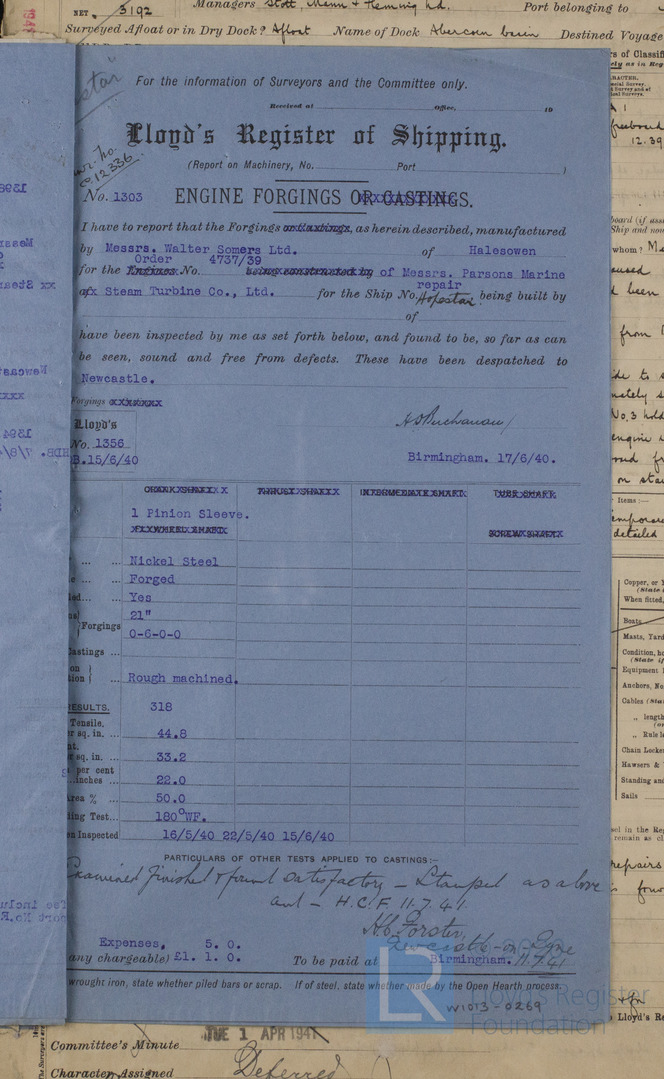 1941
NET 3192
Managers Stott, Mann & Fleming Ltd.
Port belonging to
Surveyed Afloat or in Dry Dock? Afloat Name of Dock Abercorn basin Destined Voyage
For the information of Surveyors and the Committee only.
Received at office, 19
Lloyd's Register of Shipping.
(Report on Machinery, No. Port )
No. 1303 ENGINE FORGINGS OR CASTINGS.
I have to report that the Forgings or Castings, as herein described, manufactured
by Messrs. Walter Somers Ltd. of Halesowen
Order 4737/39
for the Engines No. being constructed by of Messrs. Parsons Marine
repair
Steam Turbine Co., Ltd. for the Ship No. Hopestar being built by
of
have been inspected by me as set forth below, and found to be, so far as can
be seen, sound and free from defects. These have been despatched to
Newcastle.
Forgings xxxxxxx
Lloyd's
No. 1356
B.15/6/40
Birmingham. 17/6/40.
CRANK SHAFT THRUST SHAFT INTERMEDIATE SHAFT TUBE SHAFT
1 Pinion Sleeve.
FLYWHEEL SHAFT SCREW SHAFT
Nickel Steel
Forged
Yes
21"
Forgings 0-6-0-0
Castings ...
Rough machined.
RESULTS. 318
Tensile,
sq. in. ... 44.8
sq. in. ... 33.2
per cent
inches ... 22.0
area % ... 50.0
Test... 180°WF.
Inspected 16/5/40 22/5/40 15/6/40
PARTICULARS OF OTHER TESTS APPLIED TO CASTINGS:-
Examined finished & found satisfactory - Stamped as above
and - H.C.F. 11.7.41.
H.C. Forster,
Newcastle-on-Tyne
11.7.41
Expenses, 5. 0.
any chargeable) £1. 1. 0. To be paid at Birmingham.
wrought iron, state whether piled bars or scrap. If of steel, state whether made by the Open Hearth process.
W1013-0269
LR
Lloyd's Register
Foundation
TUE 1 APR 1941
Committee's Minute
Character Assigned Deferred
Items :—
temporary
detailed
Copper, or
(State
When fitted,
Boats
Masts, Yard
Condition, ho
(State if
Equipment
Anchors, No
Cables (Sta
„ length
(or
„ Rule le
Chain Locke
Hawsers &
Standing and
Sails
repairs
Lloyd's Re